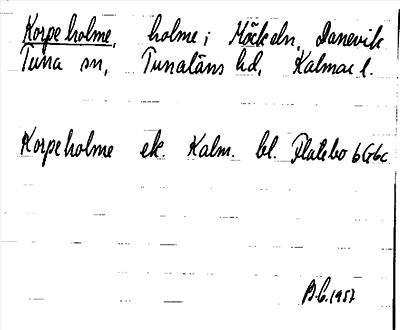 Korpeholme, holme i Möckeln, Danevik
Tuna sn, Tunaläns hd, Kalmar l.
Korpeholme ek. Kalm. bl. Flatebo 6G6c
B.G. 1957